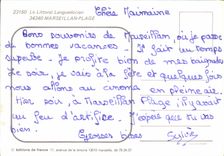 23150 Le Littoral Languedocien
34340 MARSEILLAN-PLAGE
Chère Mamimaine
Bons souvenirs de Marseillan, où je passe
de bonnes vacances. Le temps
superbe. Je profite bien de mes baignades
Le soir, je vais à la fête et quelques fois
nous allons au cinéma en pleine air.
Hier soir, à Marseillan Plage, il y avait
un feu d'artifice. J'espère que tu vas
bien. Grosses bises
Sylvie